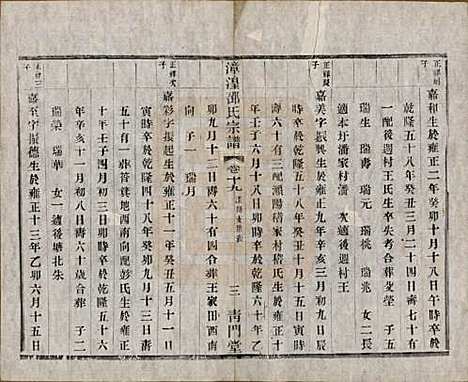 正祥明
子
嘉和生於雍正二年十月十八日午時卒於
乾隆五十八年癸丑三月二十四日壽七十有
一配後王村王氏生卒失考合葬 子五
瑞生 瑞青 瑞元 瑞桃 瑞兆 女二長
適本圩潘家村潘 次適後週村王
子
嘉美字振興生於雍正九年 六月初九日辰
時卒於乾隆五十八年癸丑十一月十八日壽
六十有三配瀨陽 家村 氏生於乾隆
年壬子六月十八日 時卒於嘉慶 年乙
卯九月十二日壽六十有四合葬王家田西南
向 子一 瑞月
漳湟邵氏宗譜
卷十九
三
青門堂
正祥次
子
嘉彩字振起生於雍正十一年癸丑五月十一日
寅時卒於乾隆四十八年癸卯九月十三日壽
五十有一葬 地西南向配彭氏生於雍正
十年壬子四月初三日卯時卒於乾隆五十六
年辛亥十一月初八日壽六十歲合葬 子二
瑞榮 瑞華 女一適後塘北朱
子
嘉至字振德生於雍正十三年乙卯六月十五日